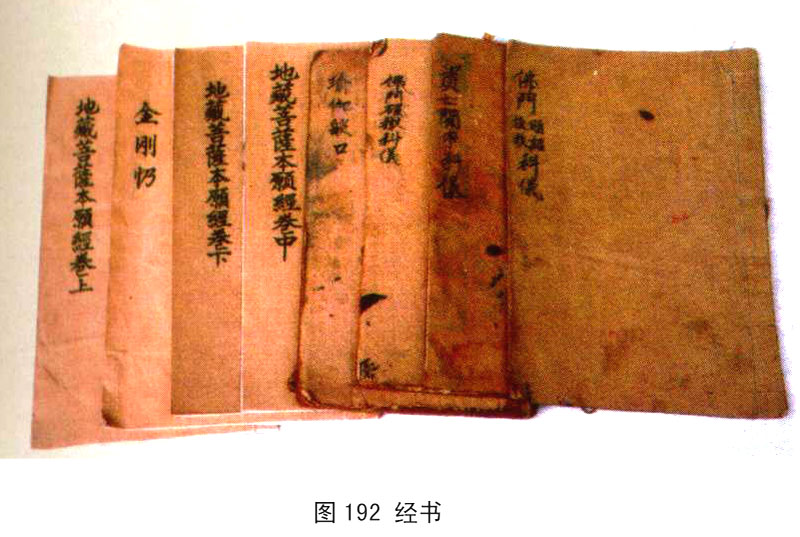 地藏菩薩本願經卷上
金剛忉
地藏菩薩本願經卷下
地藏菩薩本願經卷中
瑜伽燄口
佛門科儀
科儀
佛門科儀
图192 经书